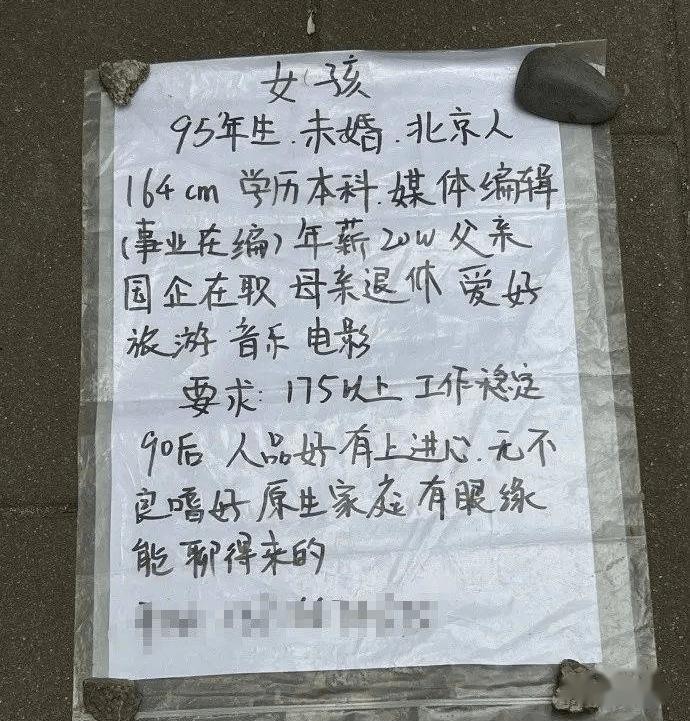 女孩
95年生.未婚.北京人
164cm 学历本科.媒体编辑
(事业在编)年薪20W父亲
国企在职 母亲退休 爱好
旅游 音乐 电影
要求:175以上 工作稳定
90后 人品好有上进心.无不
良嗜好 原生家庭 有眼缘
能聊得来的